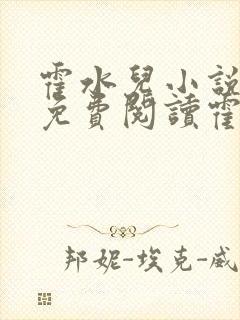 霍水兒小說
免費閱讀霍
邦妮-埃克-威